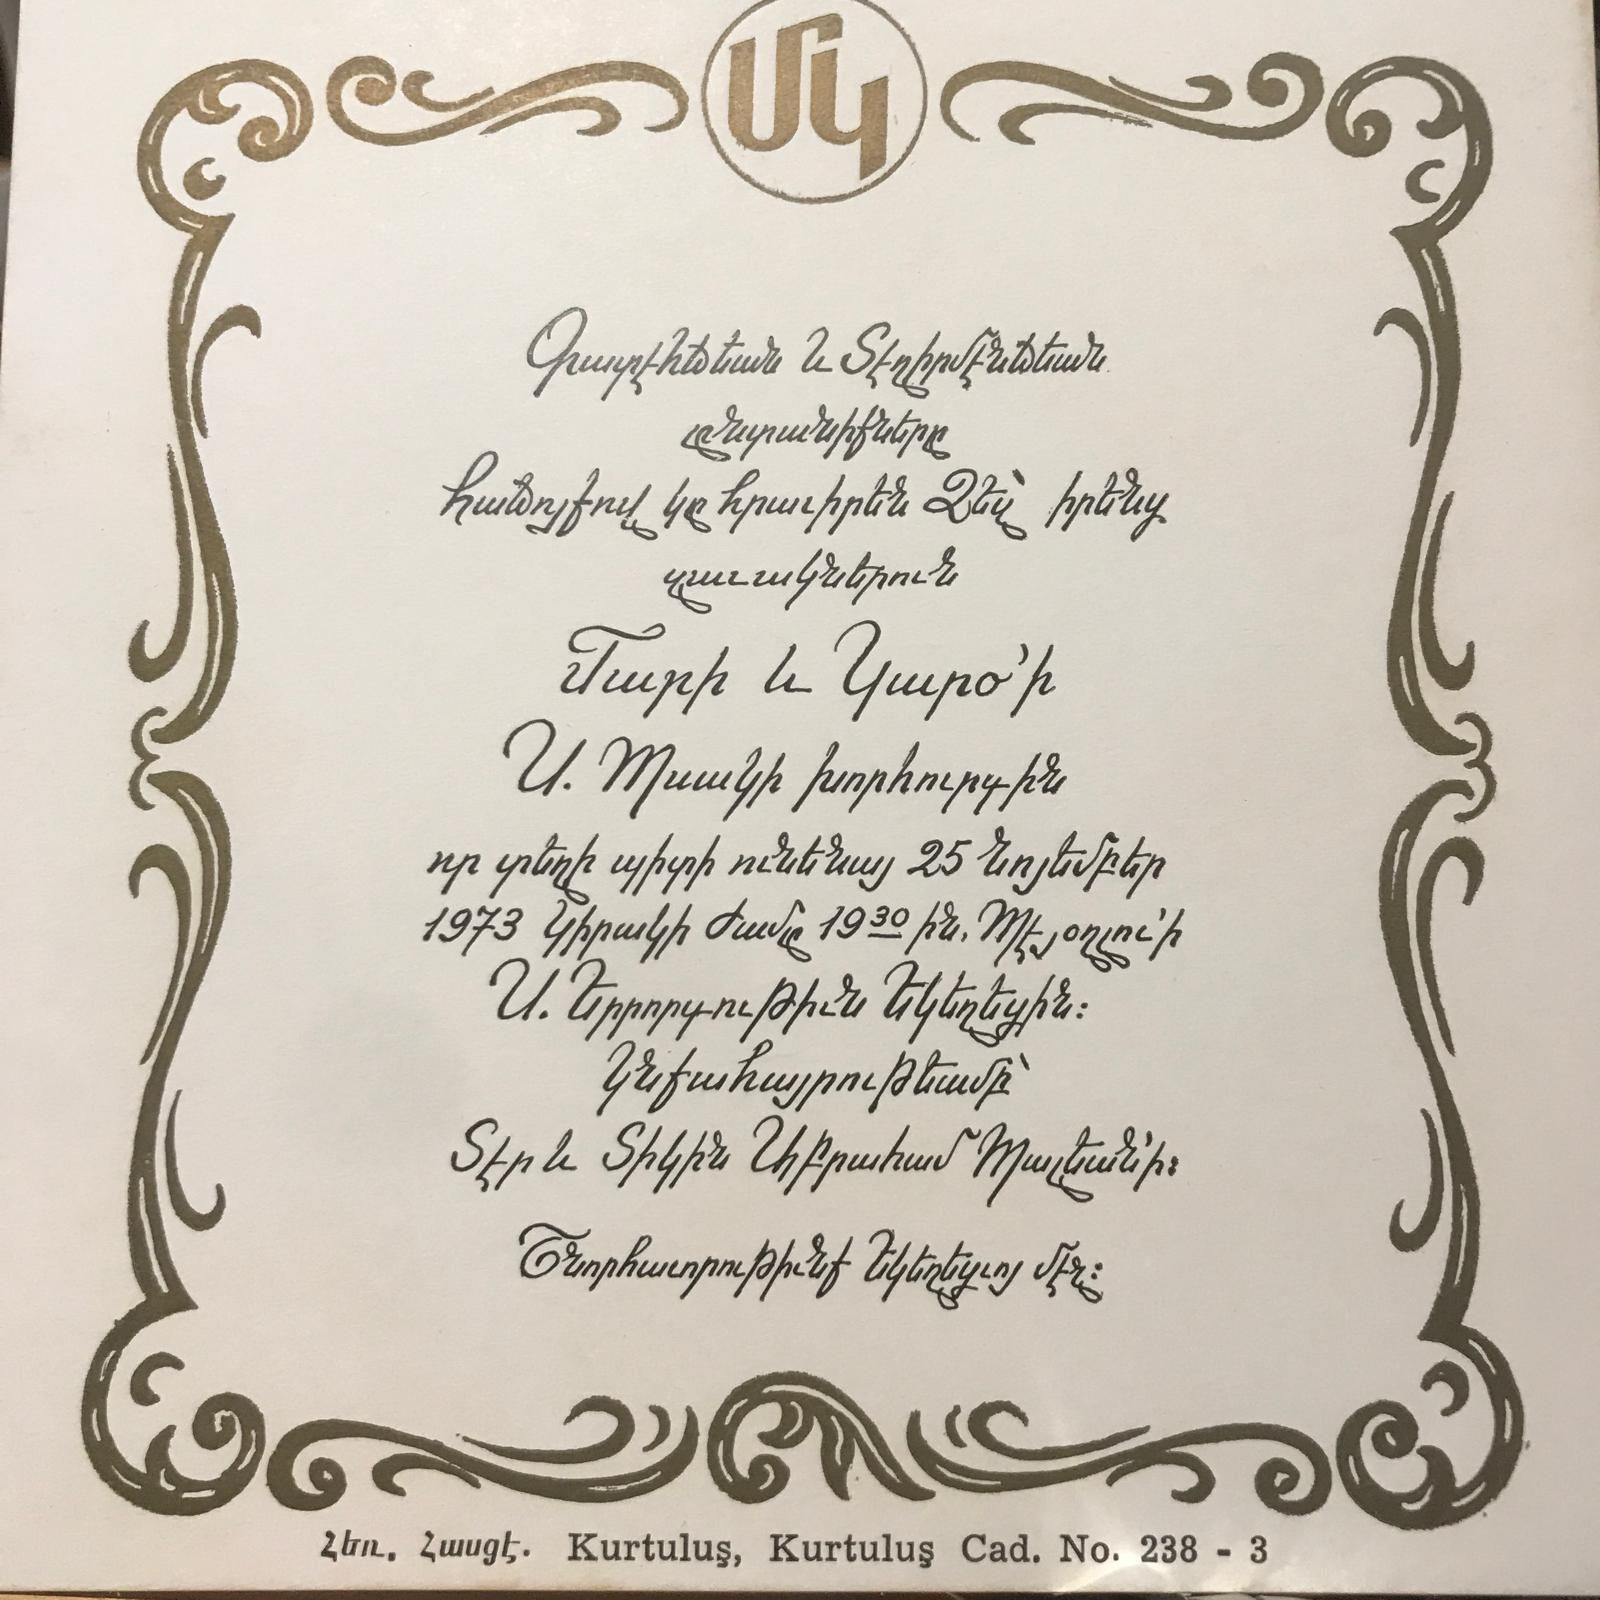 ՄԿ
և Տէղիրմէնճեան
ընտանիքները
հաճոյքով կը հրաւիրեն Ձեզ՝ իրենց
զաւակներուն
Մարի և Կարօ՛ի
Ս. Պսակի խորհուրդին
որ տեղի պիտի ունենայ 25 նոյեմբեր
1973 Կիրակի ժամը 19³⁰ ին, Պէյօղլու՛ի
Ս. Երրորդութիւն Եկեղեցին։
Կնքահայրութեամբ՝
Տէր և Տիկին Աբրահամ Պալեան՛ի։
Շնորհաւորութիւնք Եկեղեցւոյ մէջ։
Հեռ. Հասցէ. Kurtuluş, Kurtuluş Cad. No. 238 - 3